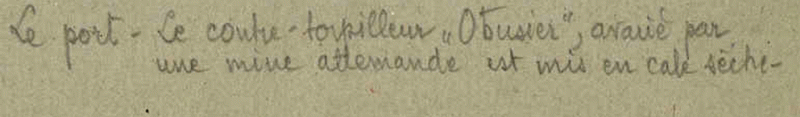 Le port - Le contre-torpilleur „Obusier", avarié par
une mine allemande est mis en cale sèche -